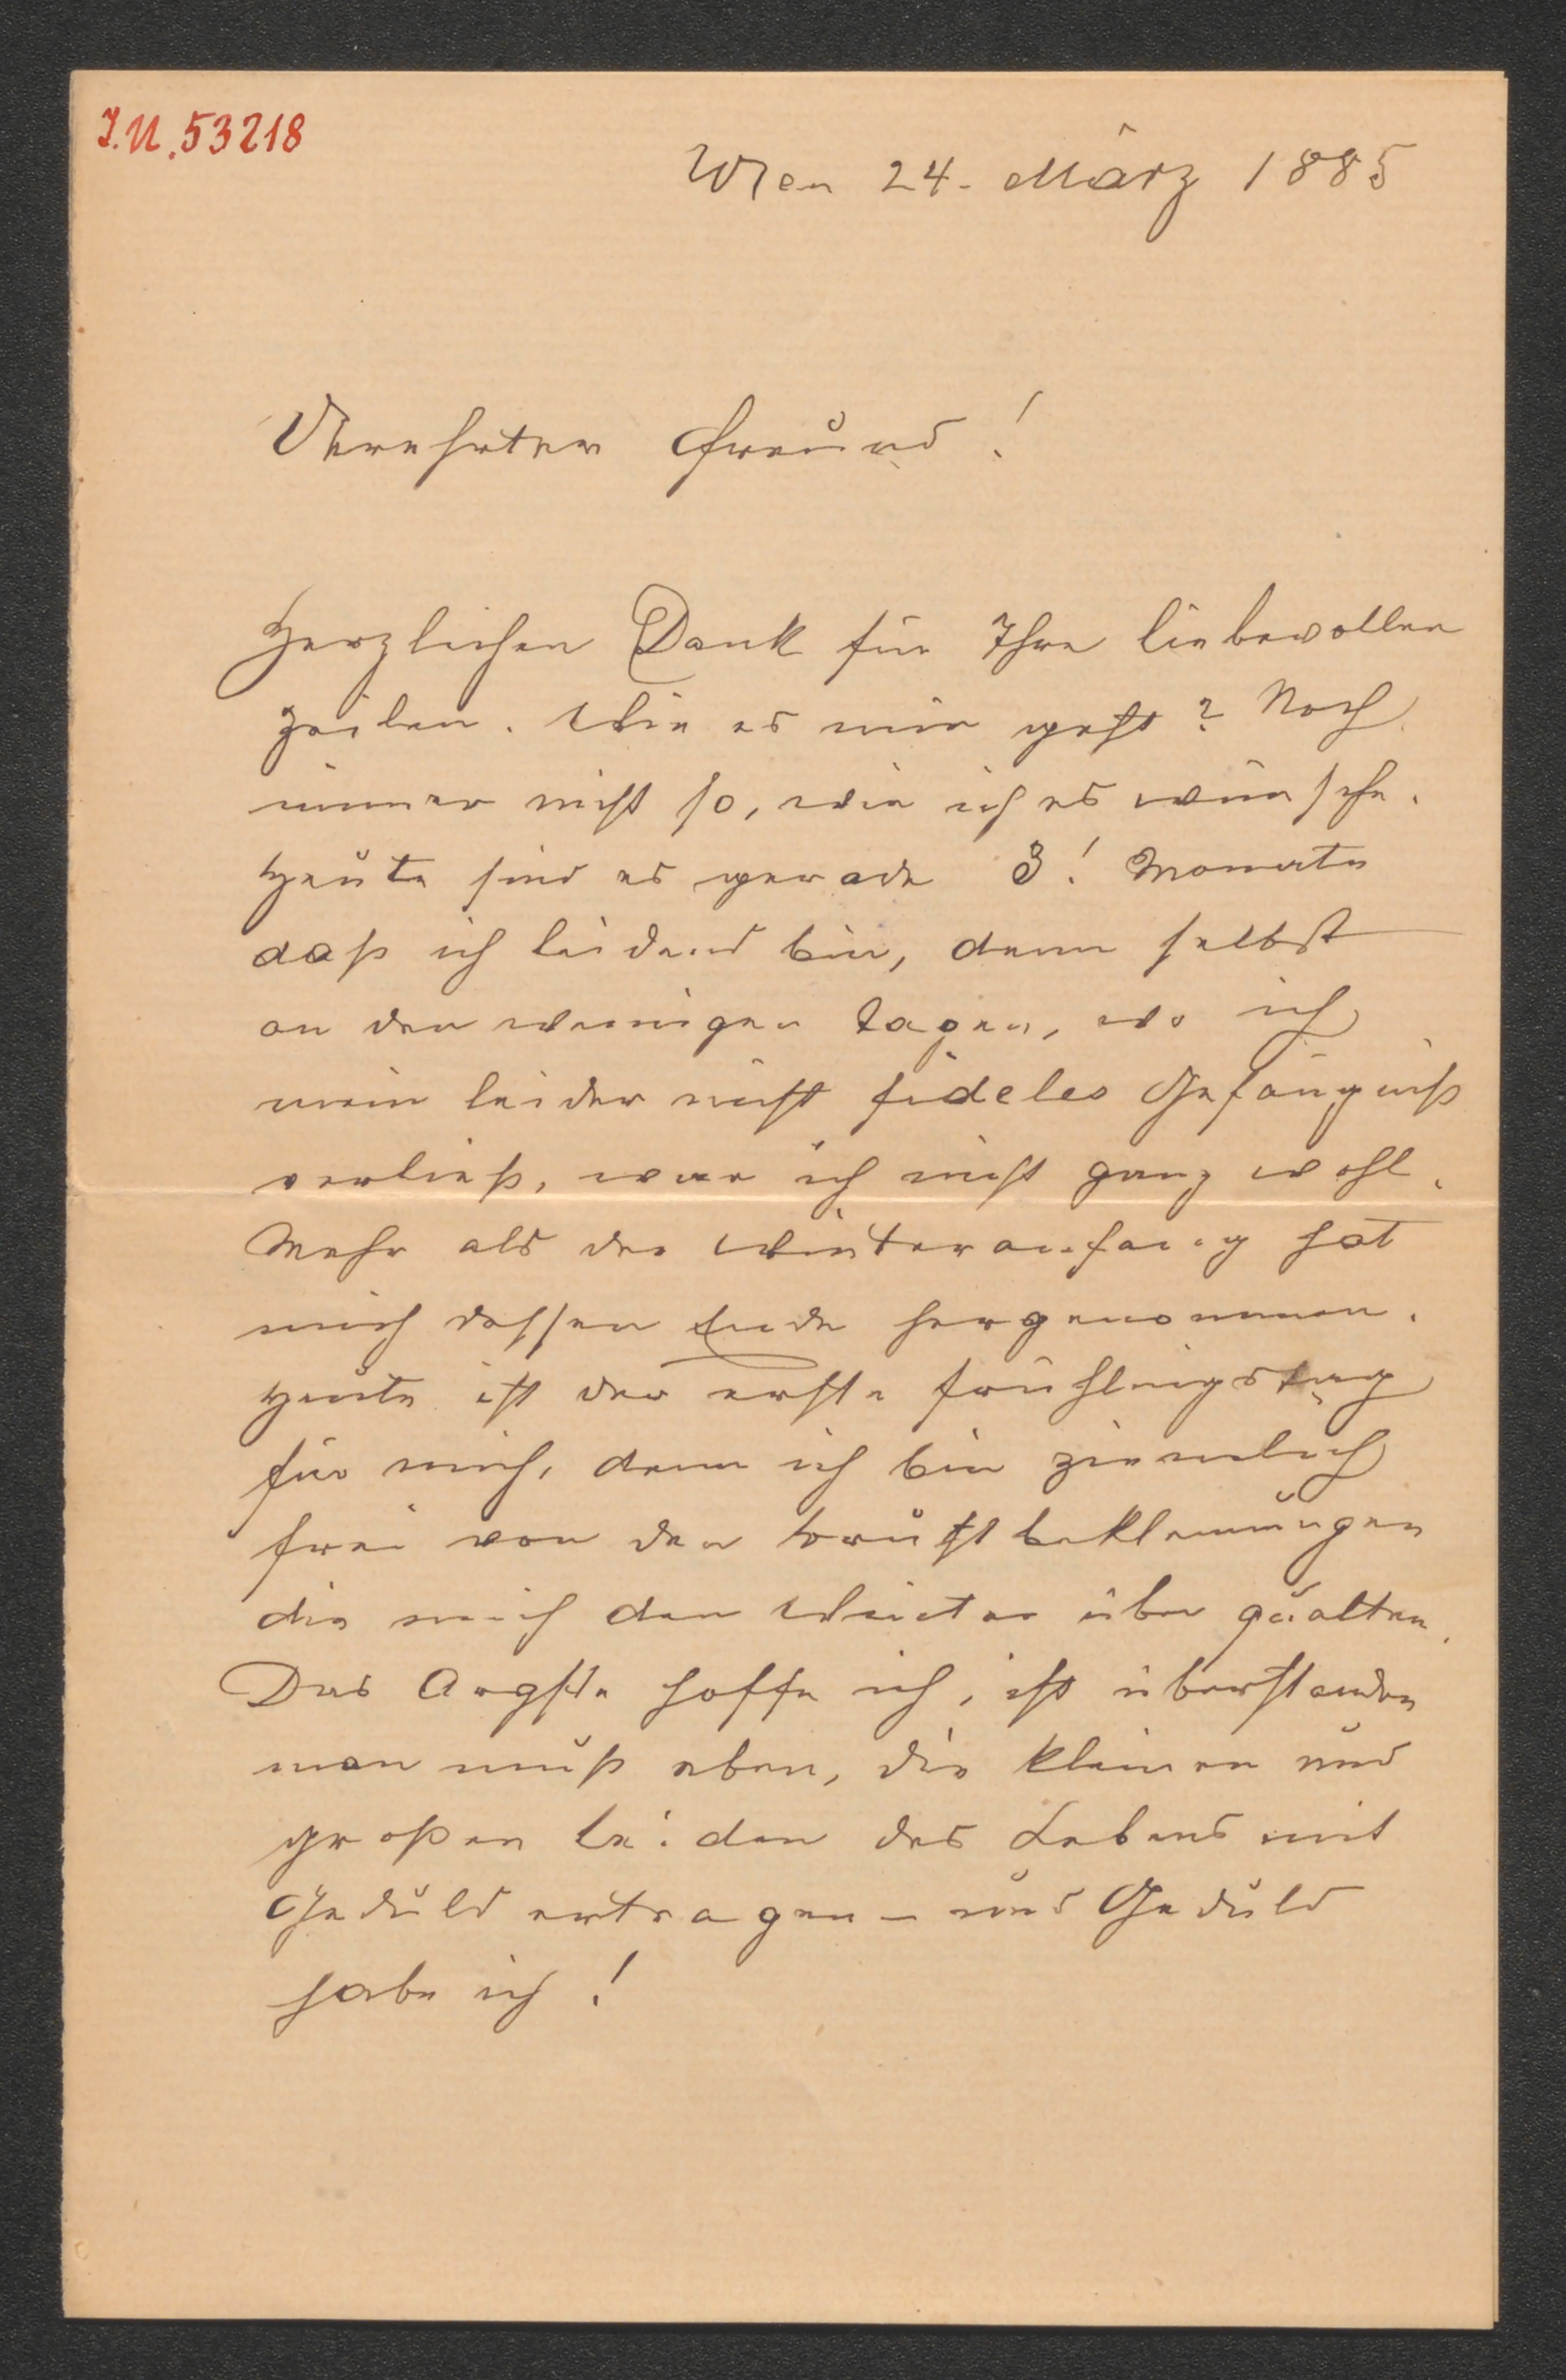 I.N. 53218
Wien 24. März 1885
Verehrter Freund!
Herzlichen Dank für Ihre liebevollen
Zeilen. Wie es mir geht? Noch
immer nicht so, wie ich es wünsche.
Heute sind es gerade 3! Monate
daß ich leidend bin, denn selbst
an den wenigen Tagen, wo ich
mein leider nicht fideles Gefängniß
verließ, war ich nicht ganz wohl.
Mehr als der Winteranfang hat
mich dessen Ende hergenommen.
Heute ist der erste Frühlingstag
für mich, denn ich bin ziemlich
frei von den Brustbeklemmungen
die mich den Winter über quälten.
Das Aergste hoffe ich, ist überstanden
man muß eben, die kleinen und
großen Leiden des Lebens mit
Geduld ertragen – und Geduld
habe ich!